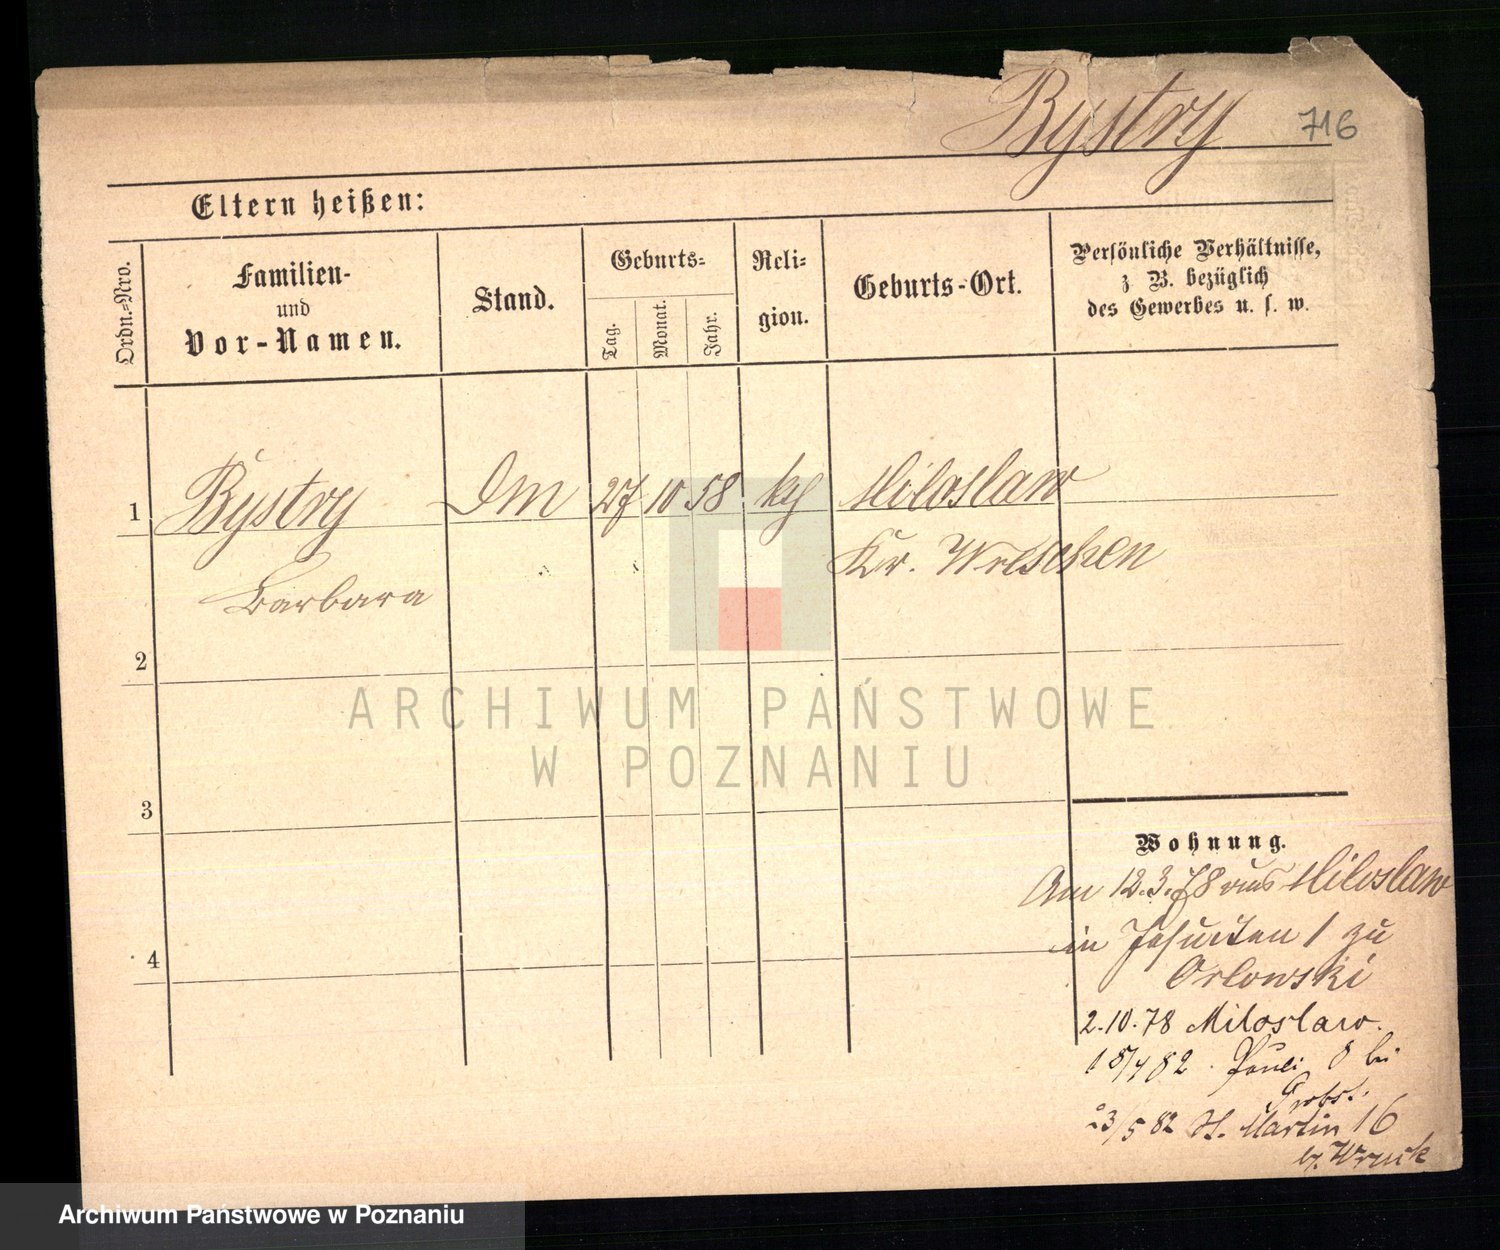 Bystry 716
Eltern heißen:
Ordn.-Nro.
Familien-
und
Vor-Namen.
Stand.
Geburts-
Tag.
Monat.
Jahr.
Reli-
gion.
Geburts-Ort.
Persönliche Verhältnisse,
z. B. bezüglich
des Gewerbes u. s. w.
1 Bystry Dm 27 10 58 kg Miloslaw
Kr. Wreschen
Barbara
2
3
4
Wohnung.
Am 12.3.78 aus Miloslaw
in Jesuiten 1 zu
Orlowski
2.10.78 Miloslaw.
15/4 82. Pauli 8 bei
Probst.
23/5 82 St. Martin 16
ARCHIWUM PAŃSTWOWE
W POZNANIU
Archiwum Państwowe w Poznaniu